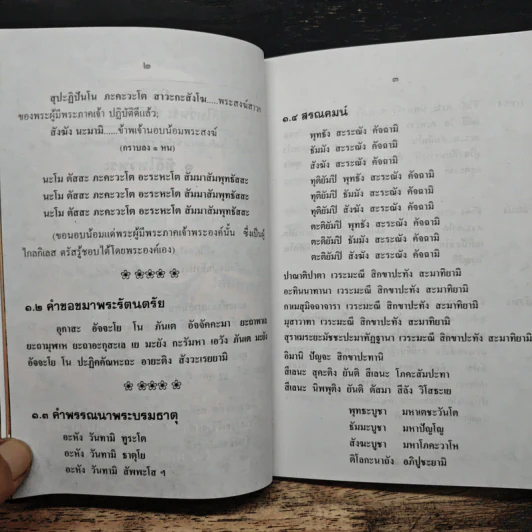 ๒
สุปะฏิปันโน ภะคะวะโต สาวะกะสังโฆ.....พระสงฆ์สาวก
ของพระผู้มีพระภาคเจ้า ปฏิบัติดีแล้ว;
สังฆัง นะมามิ.....ข้าพเจ้านอบน้อมพระสงฆ์
(กราบลง ๑ หน)
นะโม ตัสสะ ภะคะวะโต อะระหะโต สัมมาสัมพุทธัสสะ
นะโม ตัสสะ ภะคะวะโต อะระหะโต สัมมาสัมพุทธัสสะ
นะโม ตัสสะ ภะคะวะโต อะระหะโต สัมมาสัมพุทธัสสะ
(ขอนอบน้อมแด่พระผู้มีพระภาคเจ้าพระองค์นั้น ซึ่งเป็นผู้
ไกลกิเลส ตรัสรู้ชอบได้โดยพระองค์เอง)
๑.๒ คำขอขมาพระรัตนตรัย
อุกาสะ อัจจะโย โน ภันเต อัจจัคคะมา ยะถาพาเล
ยะถามุฬเห ยะถาอะกุสะเล เย มะยัง กะรัมหา เอวัง ภันเต มะยัง
อัจจะโย โน ปะฏิคคัณหะถะ อายะติง สังวะเรยยามิ
๑.๓ คำพรรณนาพระบรมธาตุ
อะหัง วันทามิ ทูระโต
อะหัง วันทามิ ธาตุโย
อะหัง วันทามิ สัพพะโส ฯ
๓
๑.๔ สรณคมน์
พุทธัง สะระณัง คัจฉามิ
ธัมมัง สะระณัง คัจฉามิ
สังฆัง สะระณัง คัจฉามิ
ทุติยัมปิ พุทธัง สะระณัง คัจฉามิ
ทุติยัมปิ ธัมมัง สะระณัง คัจฉามิ
ทุติยัมปิ สังฆัง สะระณัง คัจฉามิ
ตะติยัมปิ พุทธัง สะระณัง คัจฉามิ
ตะติยัมปิ ธัมมัง สะระณัง คัจฉามิ
ตะติยัมปิ สังฆัง สะระณัง คัจฉามิ
ปาณาติปาตา เวระมะณี สิกขาปะทัง สะมาทิยามิ
อะทินนาทานา เวระมะณี สิกขาปะทัง สะมาทิยามิ
กาเมสุมิจฉาจารา เวระมะณี สิกขาปะทัง สะมาทิยามิ
มุสาวาทา เวระมะณี สิกขาปะทัง สะมาทิยามิ
สุราเมระยะมัชชะปะมาทัฏฐานา เวระมะณี สิกขาปะทัง สะมาทิยามิ
อิมานิ ปัญจะ สิกขาปะทานิ
สีเลนะ สุคะติง ยันติ สีเลนะ โภคะสัมปะทา
สีเลนะ นิพพุติง ยันติ ตัสมา สีลัง วิโสธะเย
พุทธะบูชา มหาเตชะวันโต
ธัมมะบูชา มหาปัญโญ
สังฆะบูชา มหาโภคะวาโห
ติโลกะนาถัง อภิปูชะยามิ